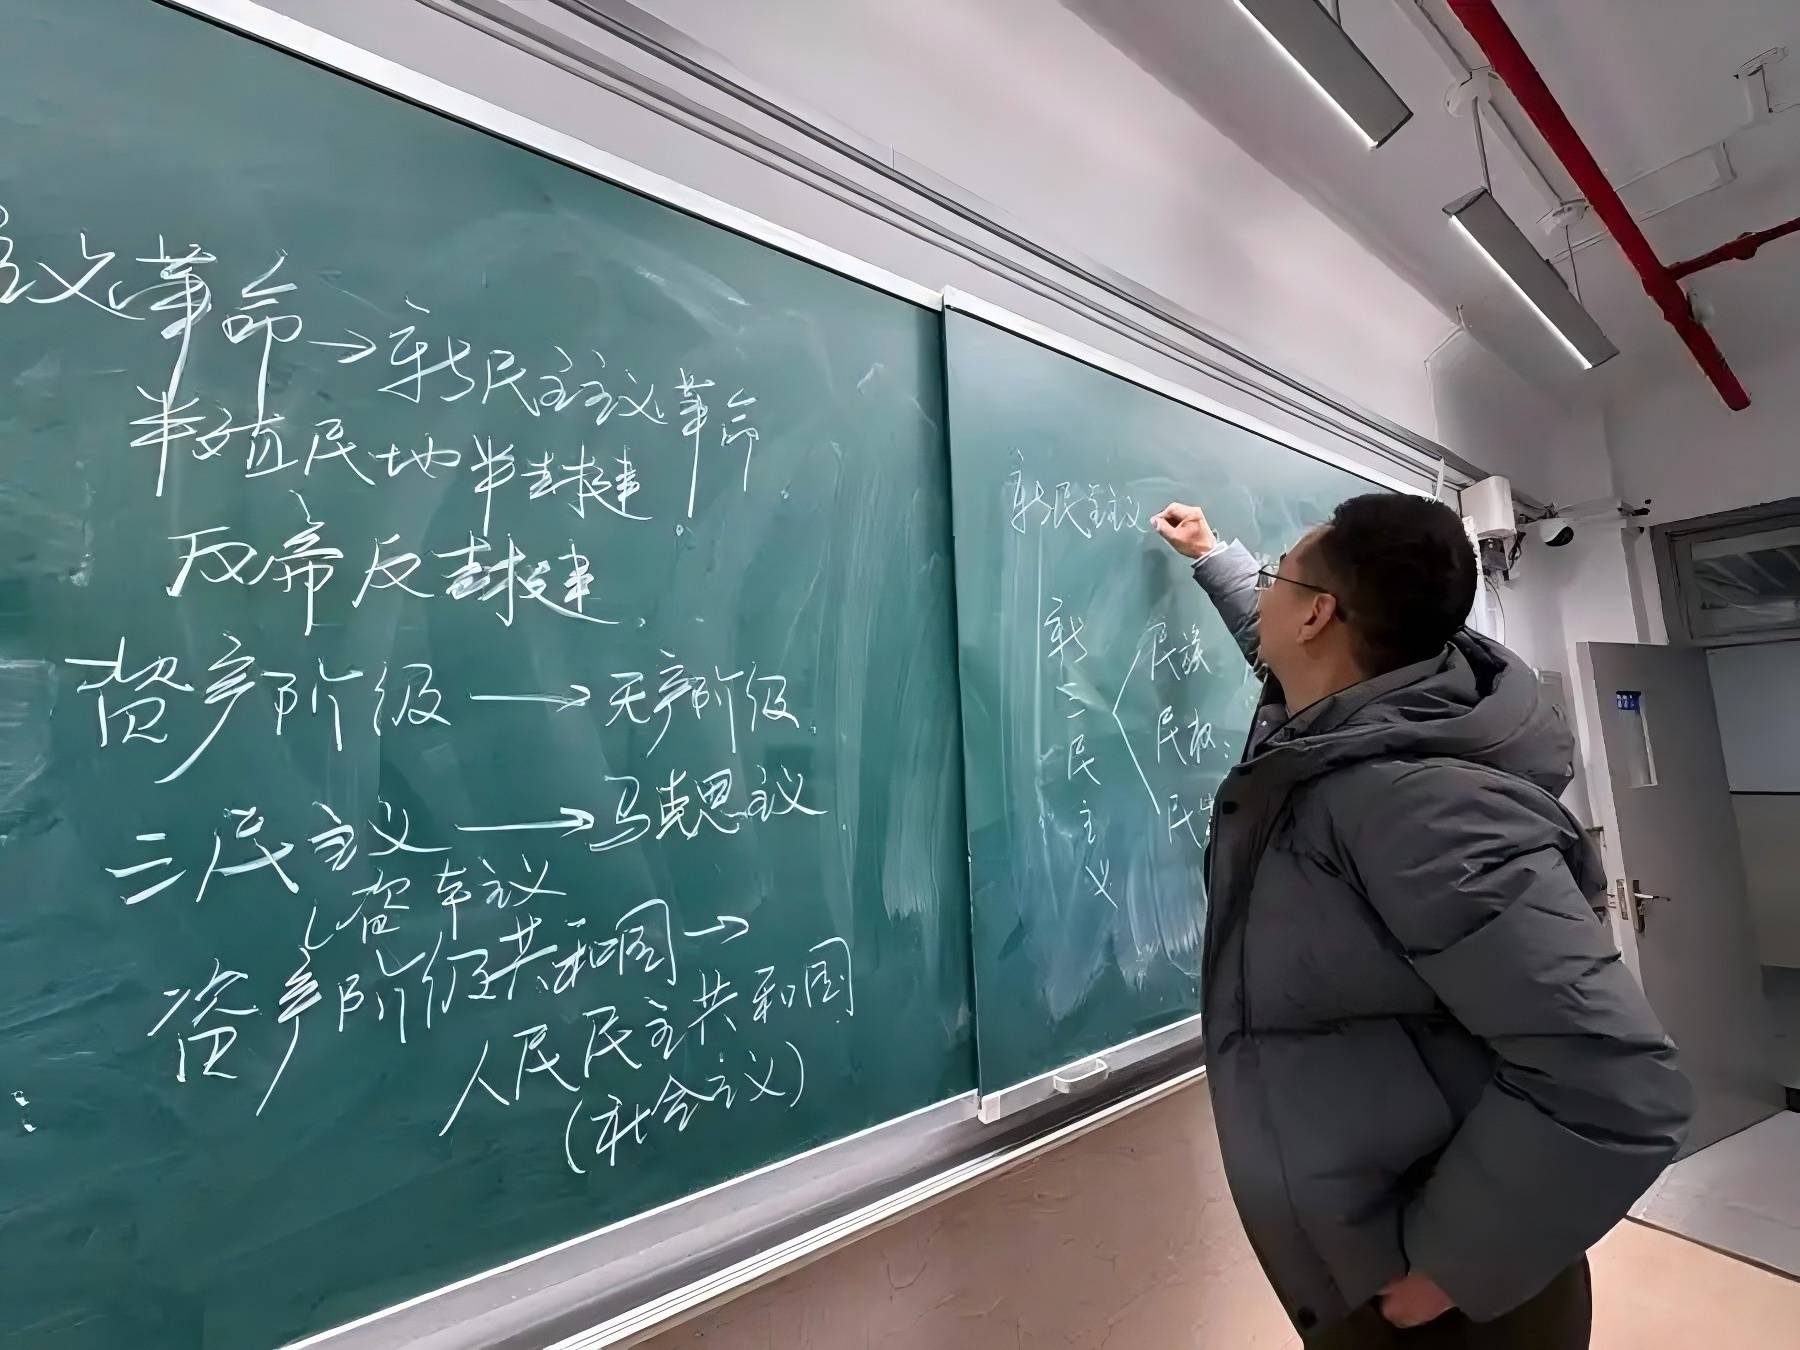 主义革命→新民主主义革命
半殖民地半封建
反帝反封建
资产阶级→无产阶级
三民主义→马克思主义
资本主义
资产阶级共和国→
人民民主共和国
(社会主义)
新民主主义
新三民主义
民族
民权:
民